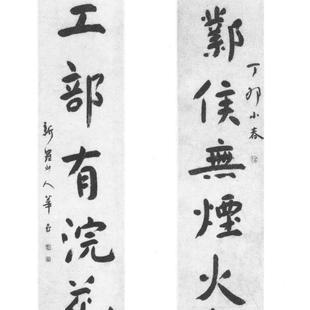 丁卯小春
鄴侯無煙火
工部有浣花
新羅山人華嵒